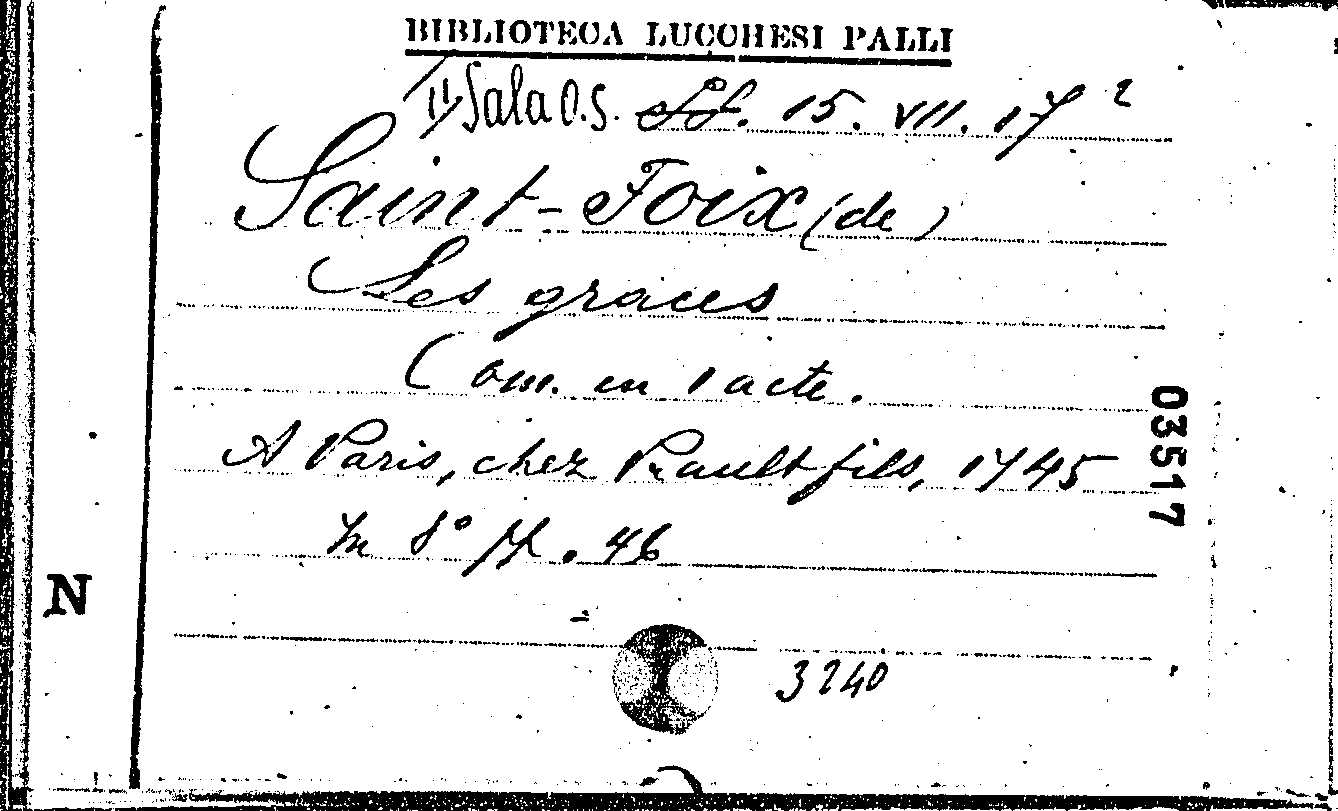 BIBLIOTECA LUCCHESI PALLI
II Sala O.S. Sf. 15. VII. 17 2
Saint-Foix (de)
Les graces
Com. en 1 acte.
A Paris, chez Prault fils, 1745
In 8° pp. 46
3240
03517
N